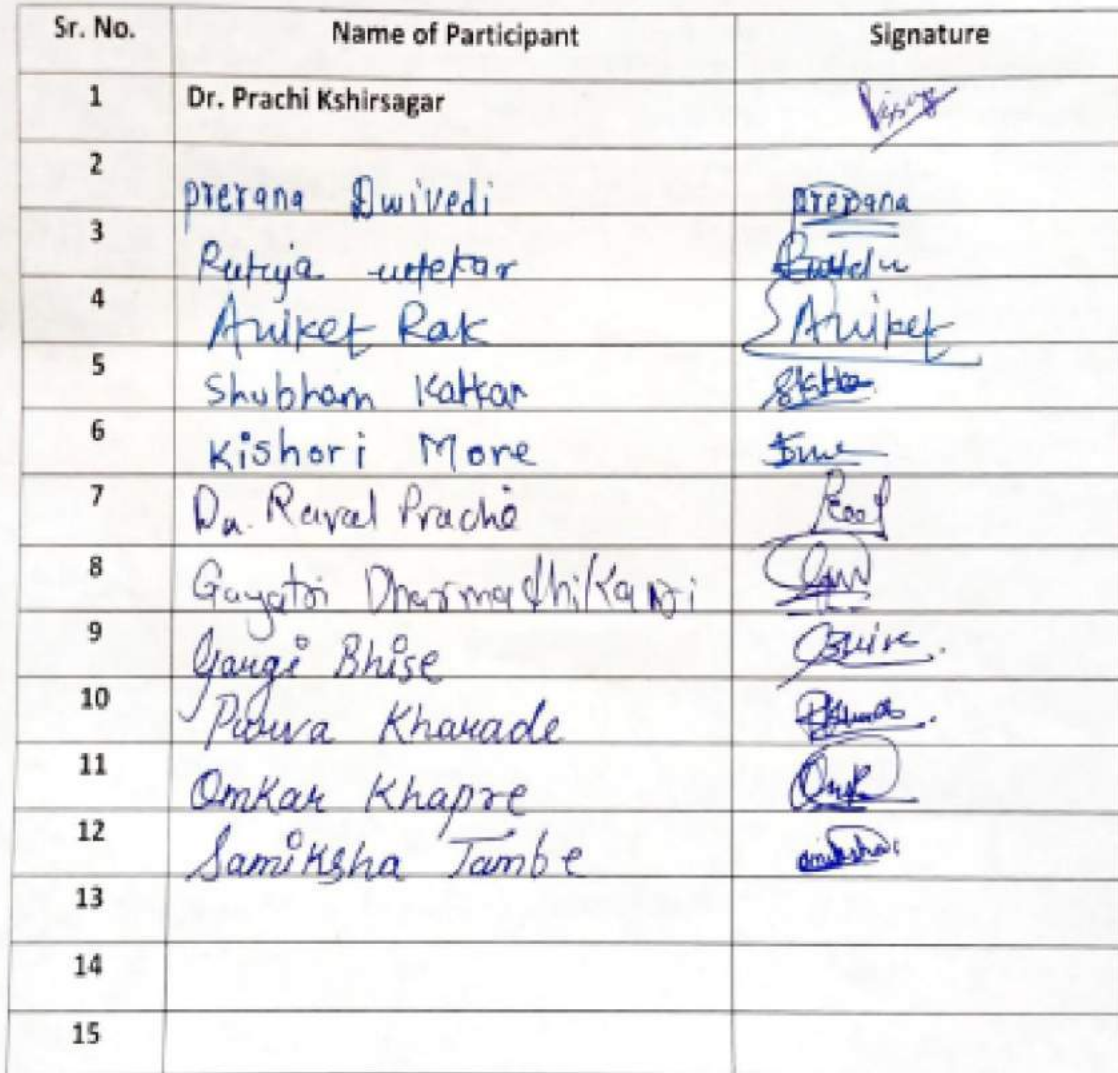 Sr. No. Name of Participant Signature
1 Dr. Prachi Kshirsagar
2 prerana Dwivedi prerana
3 Rutuja utekar
4 Aniket Rak Aniket
5 Shubham Katkar
6 Kishori More
7 Dr. Raval Prachi
8 Gayatri Dharmadhikari
9 Gargi Bhise
10 Purva Kharade
11 Omkar Khapre
12 Samiksha Tambe
13
14
15